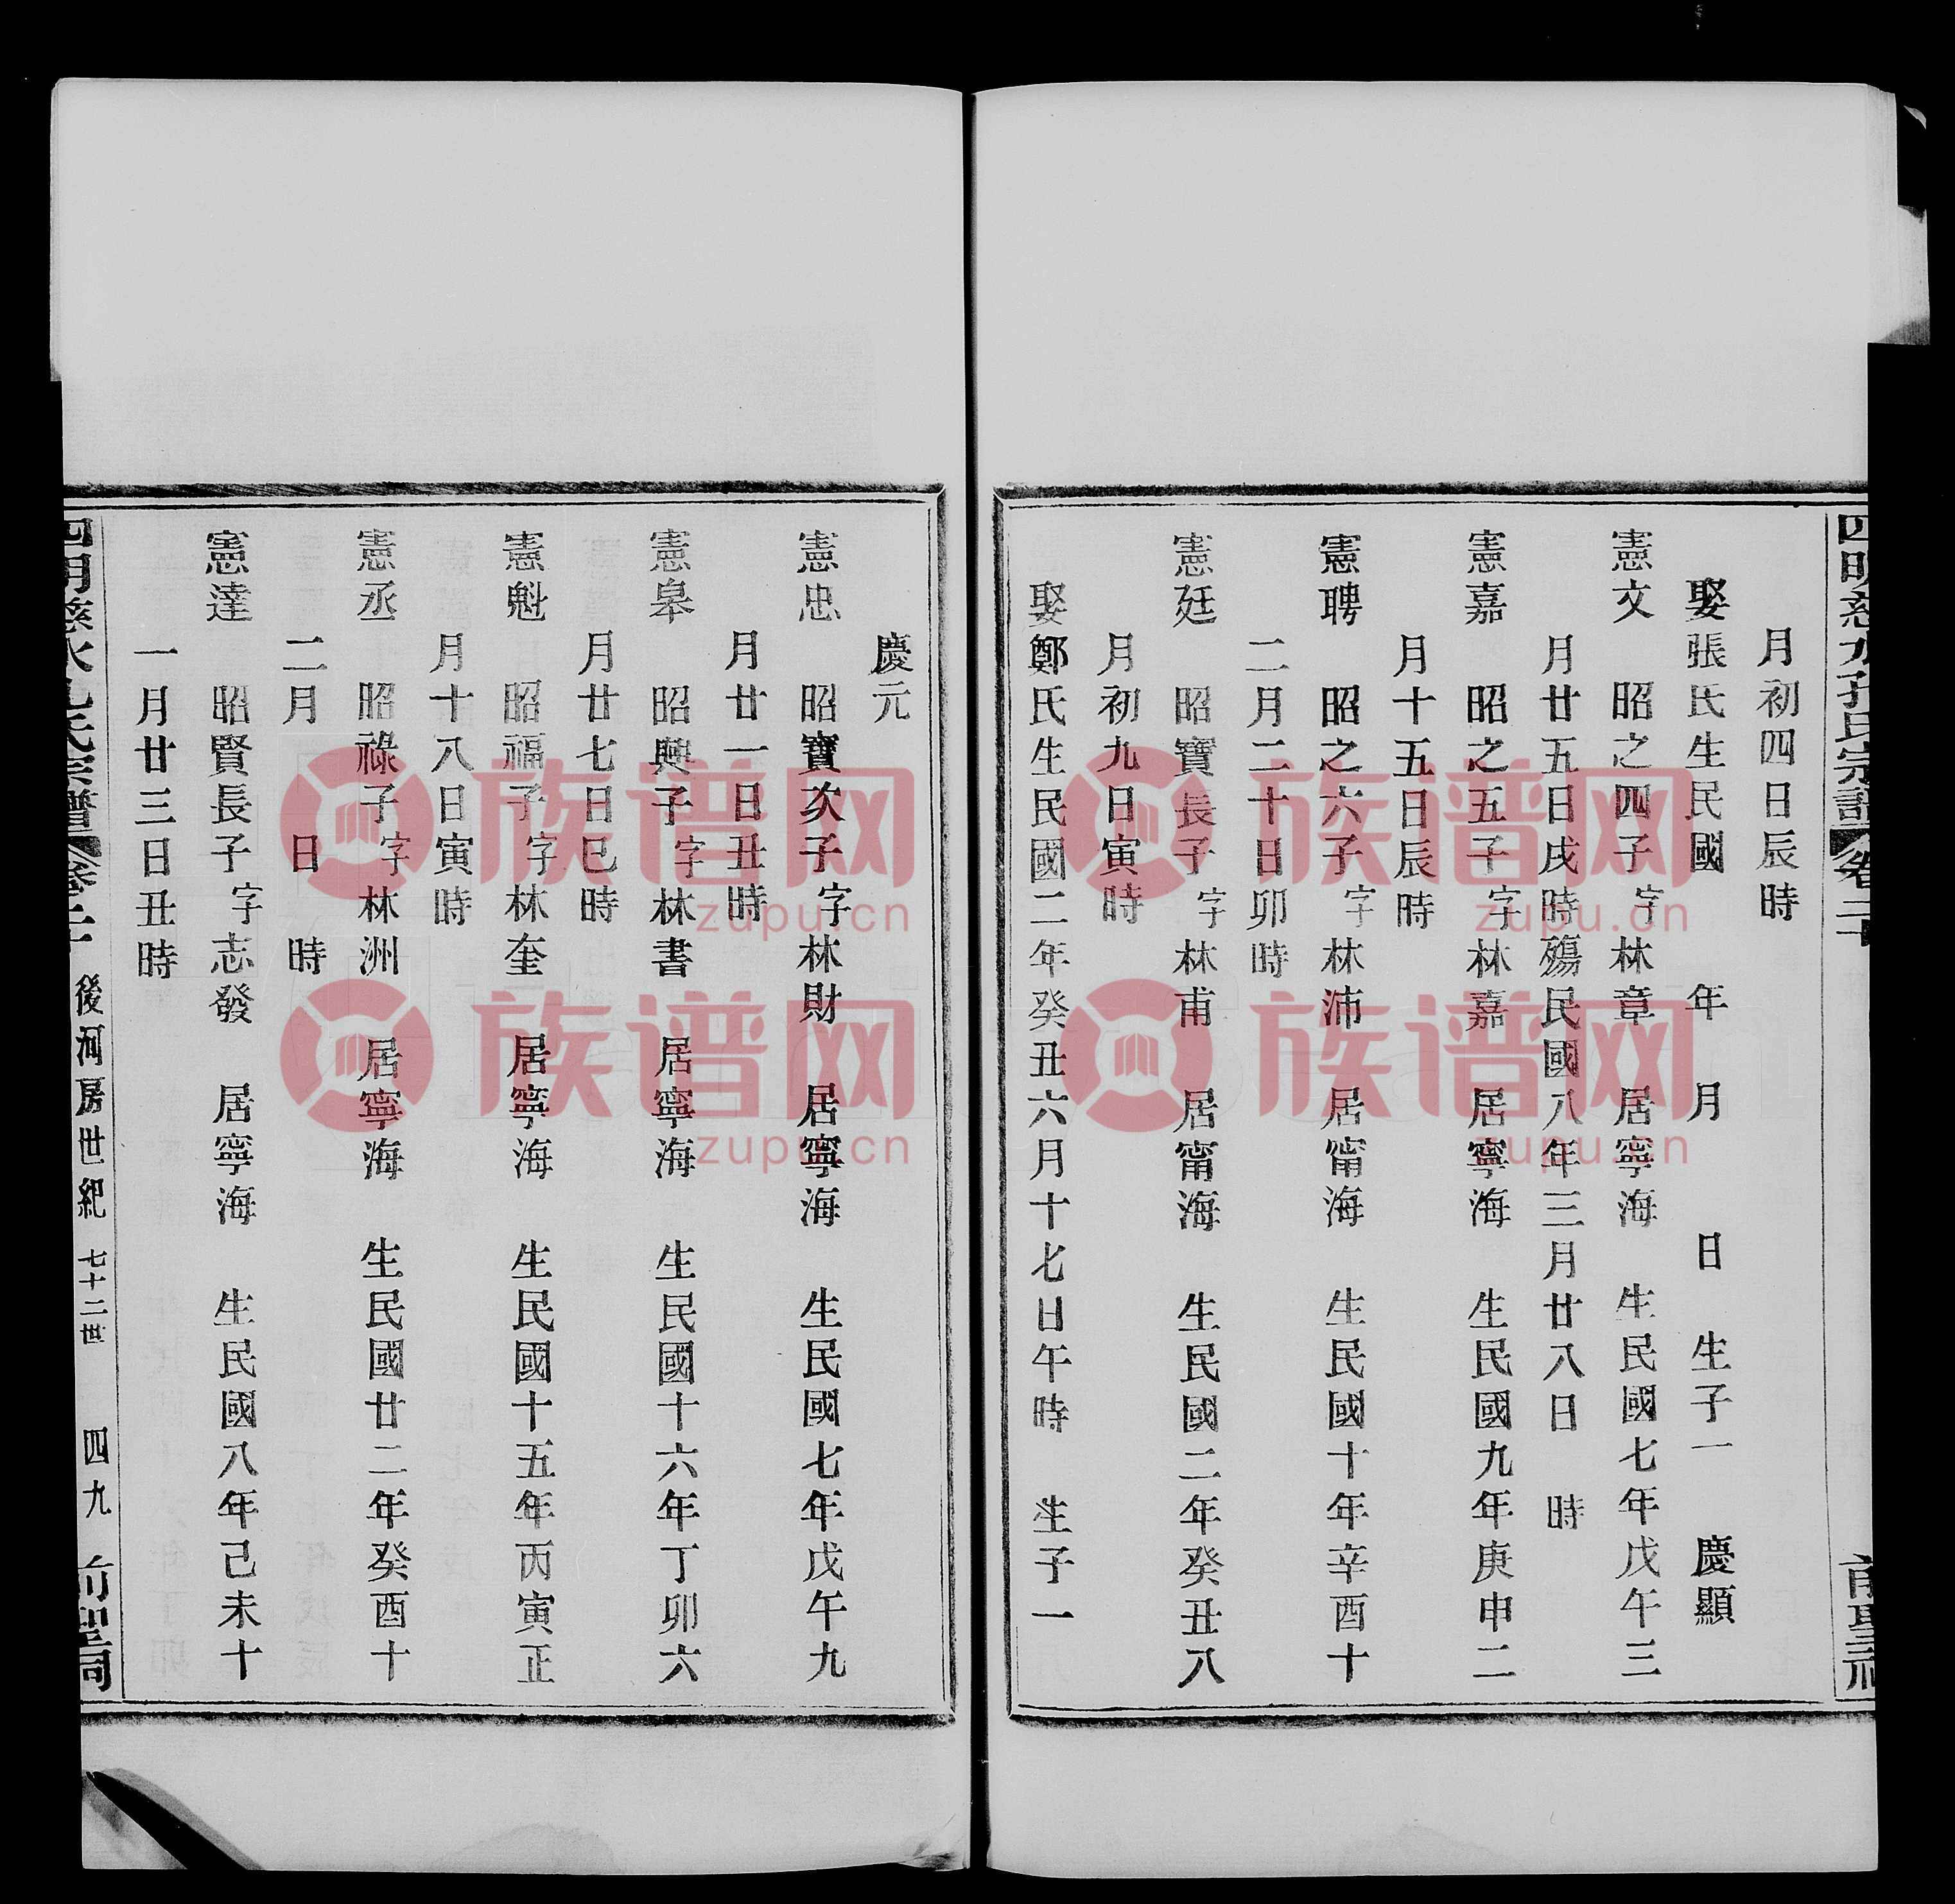 四明慈水孔氏宗譜 卷二十 前聖祠
月初四日辰時
娶張氏生民國 年 月 日 生子一 慶顯
憲文 昭之四子 字林章 居寧海 生民國七年戊午三
月廿五日戌時殤民國八年三月廿八日 時
憲嘉 昭之五子 字林嘉 居寧海 生民國九年庚申二
月十五日辰時
憲聘 昭之六子 字林沛 居甯海 生民國十年辛酉十
二月二十日卯時
憲廷 昭寶長子 字林甫 居甯海 生民國二年癸丑八
月初九日寅時
娶鄭氏生民國二年癸丑六月十七日午時 生子一
慶元
憲忠 昭寶次子 字林財 居寧海 生民國七年戊午九
月廿一日丑時
憲皋 昭興子 字林書 居寧海 生民國十六年丁卯六
月廿七日巳時
憲魁 昭福子 字林奎 居寧海 生民國十五年丙寅正
月十八日寅時
憲丞 昭祿子 字林洲 居寧海 生民國廿二年癸酉十
二月 日 時
憲達 昭賢長子 字志發 居寧海 生民國八年己未十
一月廿三日丑時
四明慈水孔氏宗譜 卷二十 後河房世紀 七十二世 四九 前聖祠
族谱网
zupu.cn
族谱网
zupu.cn
族谱网
zupu.cn
族谱网
zupu.cn